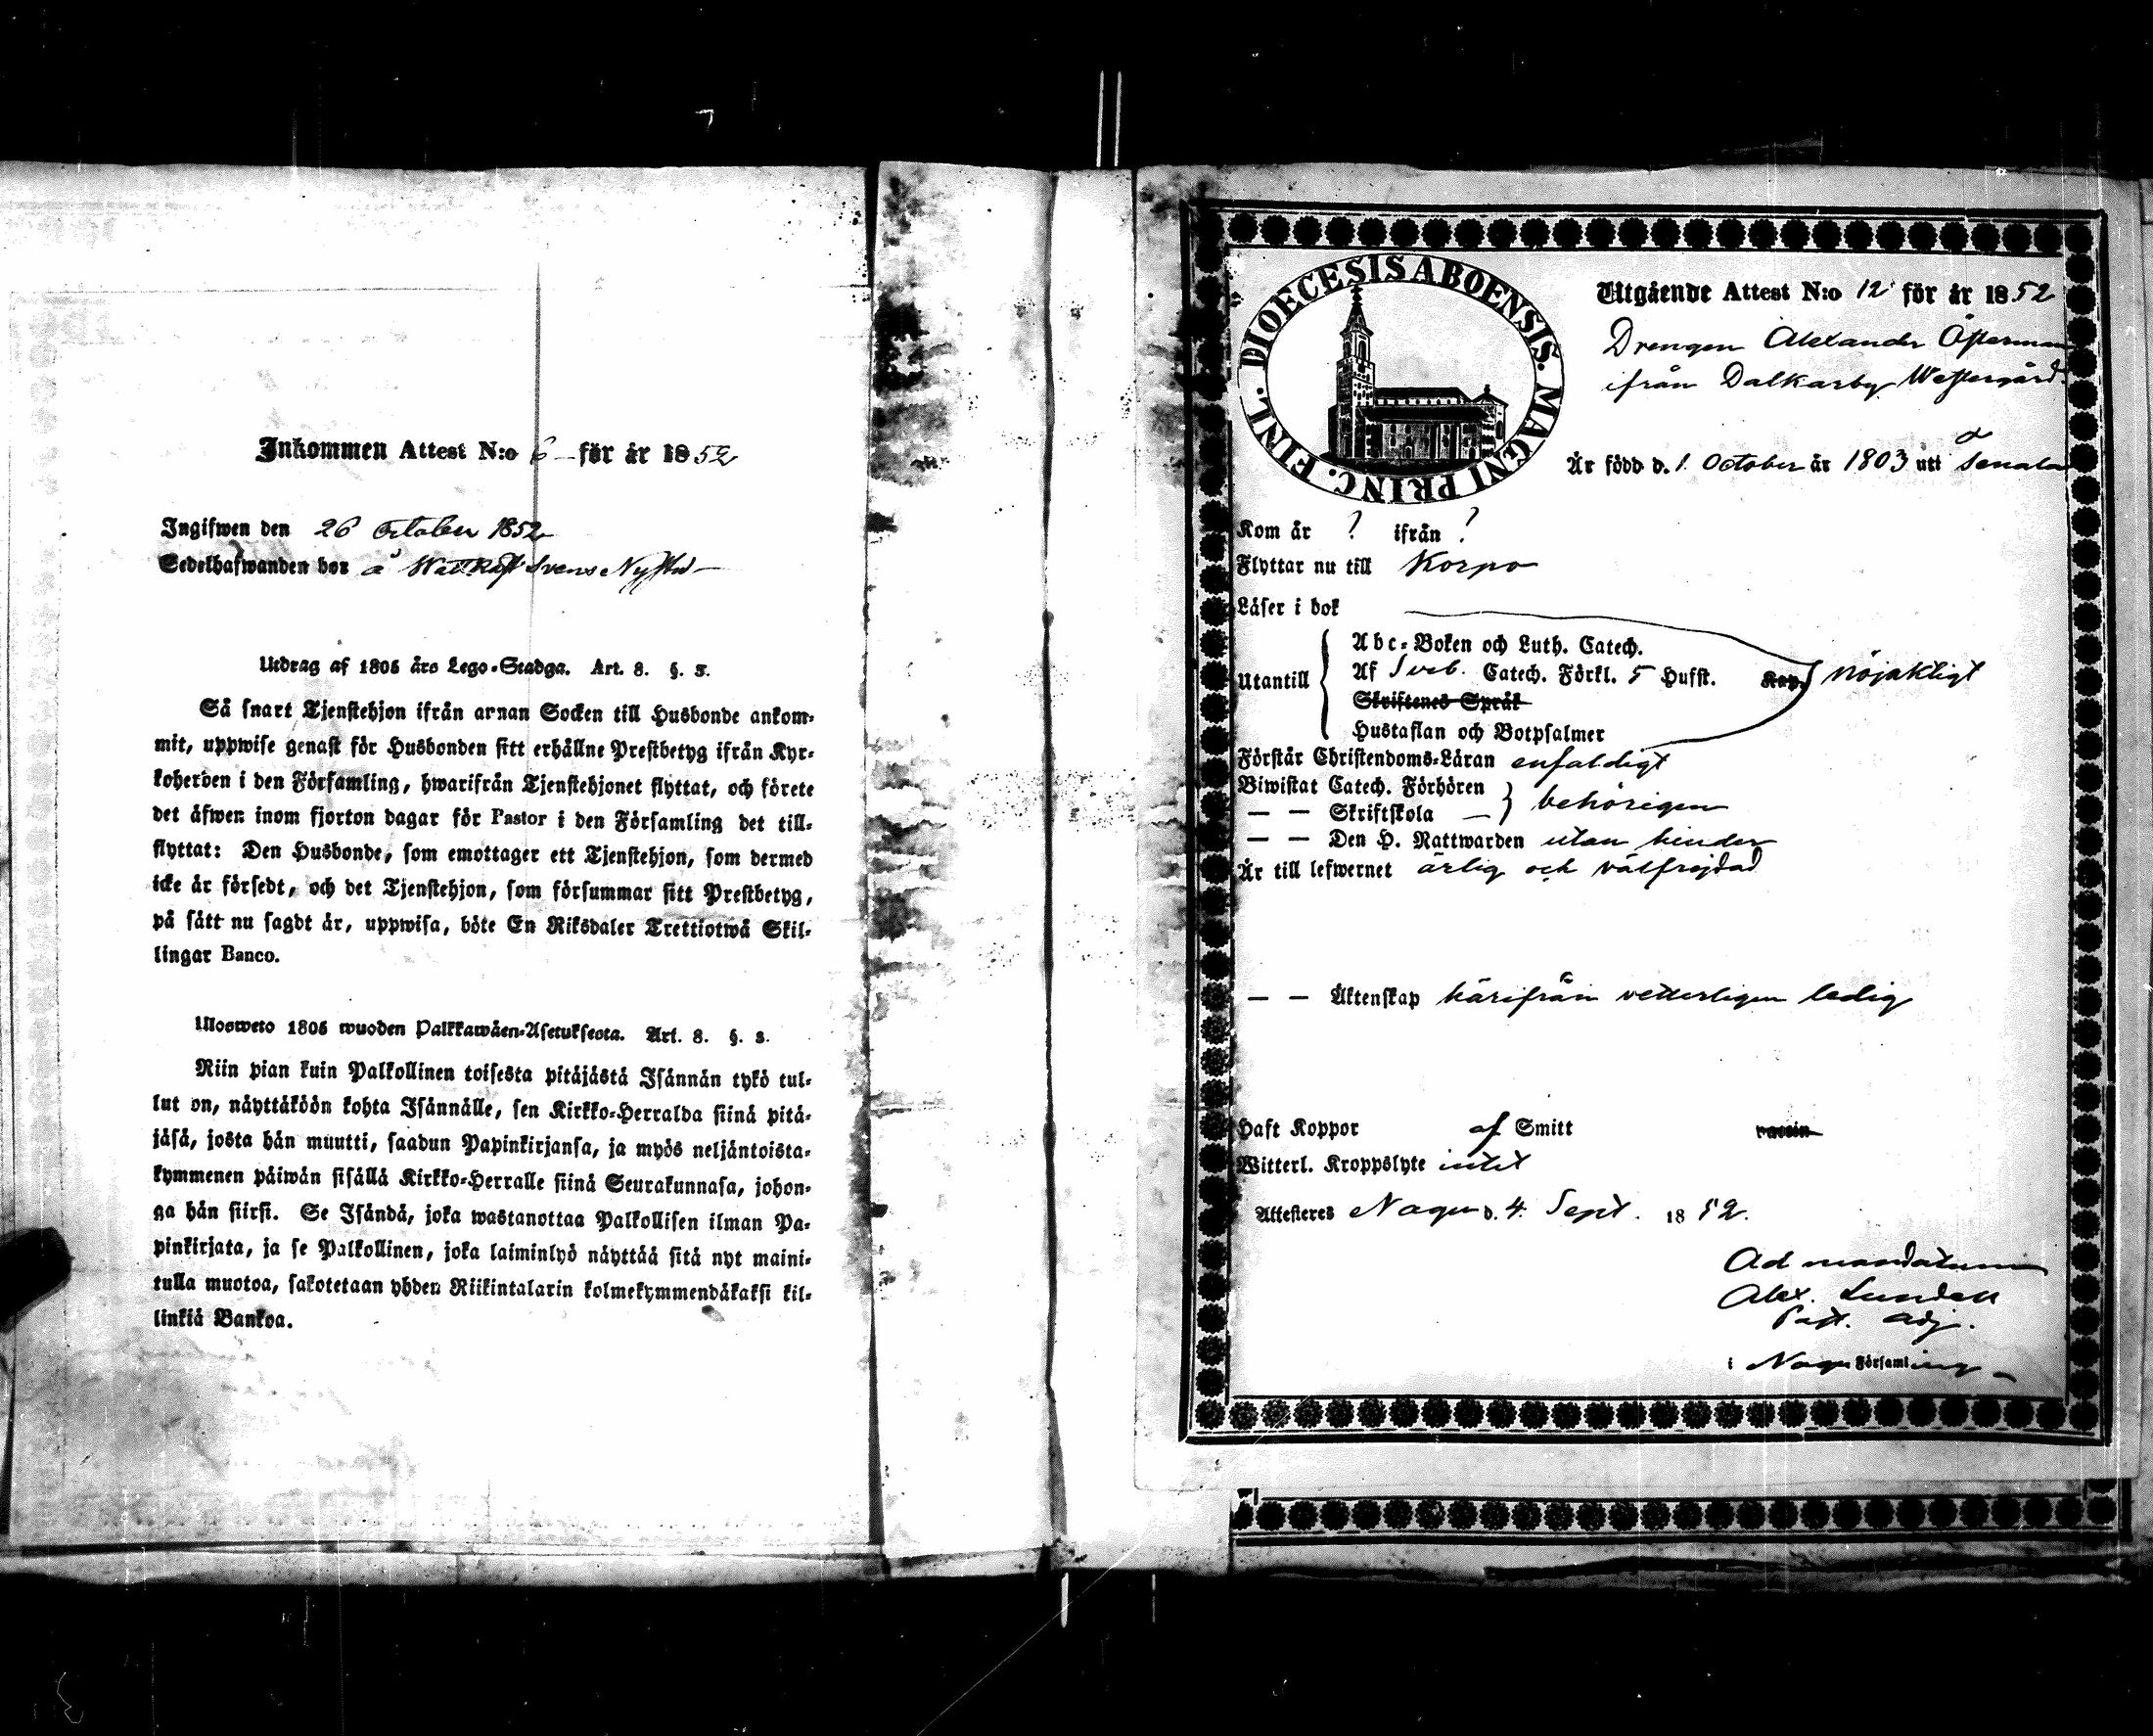 Inkommen Attest N:o 6 för år 1852
Ingifwen den 26 October 1852
Sedelhafwanden bor å Wattkast Svens
Utdrag af 1805 års Lego-Stadga. Art. 8. §. 3.
Så snart Tjenstehjon ifrån annan Socken till Husbonde ankom-
mit, uppwise genast för Husbonden sitt erhållne Prestbetyg ifrån Kyr-
koherden i den Församling, hwarifrån Tjenstehjonet flyttat, och förete
det äfwen inom fjorton dagar för Pastor i den Församling det till-
flyttat: Den Husbonde, som emottager ett Tjenstehjon, som dermed
icke är försedt, och det Tjenstehjon, som försummar sitt Prestbetyg,
på sätt nu sagdt är, uppwisa, böte En Riksdaler Trettiotwå Skil-
lingar Banco.
Ulosweto 1805 wuoden Palkkawäen-Asetuksesta. Art. 8. §. 3.
Niin pian kuin Palkollinen toisesta pitäjästä Isännän tykö tul-
lut on, näyttäköön kohta Isännälle, sen Kirkko-Herralda siinä pitä-
jäsä, josta hän muutti, saadun Papinkirjansa, ja myös neljäntoista-
kymmenen päiwän sisällä Kirkko-Herralle siinä Seurakunnasa, johon-
ga hän siirsi. Se Isändä, joka wastanottaa Palkollisen ilman Pa-
pinkirjata, ja se Palkollinen, joka laiminlyö näyttää sitä nyt maini-
tulla muotoa, sakotetaan yhden Riikintalarin kolmekymmendäkaksi kil-
linkiä Bankoa.
DIOECESIS ABOENSIS. MAGNI PRINC. FINL.
Utgående Attest N:o 12 för år 1852
Drengen Alexander Österman
ifrån Dalkarby Westergård.
Är född d. 1 October år 1803 uti
Kom år ? ifrån ?
Flyttar nu till Korpo
Läser i bok
Abc-Boken och Luth. Catech.
Utantill Af Sveb. Catech. Förkl. 5 Hufst. Kap. nöjaktigt
Skriftenes Språk
Hustaflan och Botpsalmer
Förstår Christendoms-Läran enfaldigt
Biwistat Catech. Förhören
— — Skriftskola — behörigen
— — Den H. Nattwarden utan hinder
Är till lefwernet ärlig och välfrejdad
— — Äktenskap härifrån vetterligen ledig
Haft Koppor af Smitt vaccin
Witterl. Kroppslyte intet
Attesteres Nagu d. 4 Sept. 1852.
Ad mandatum
Alex. Lundell
Past. Adj.
i Nagu Församling